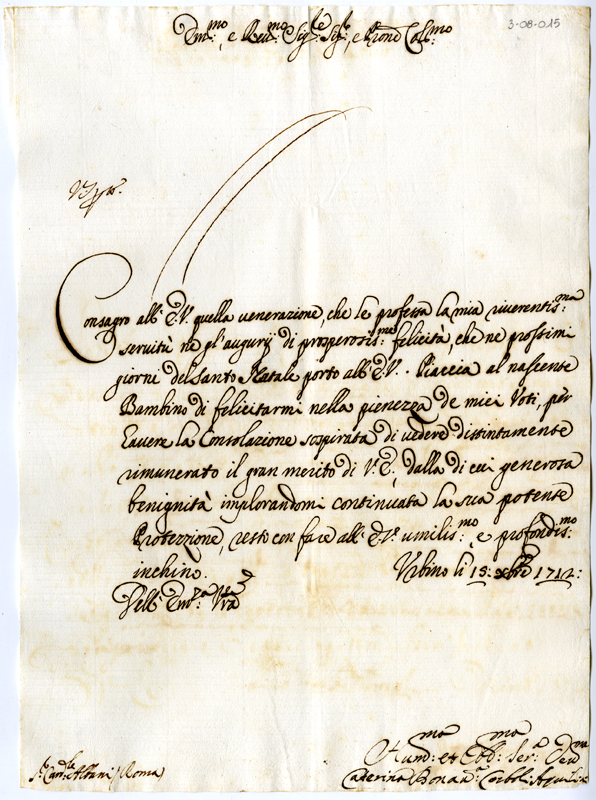 3-08-015
Em:mo, e Reu:mo Sig:re Sig:re, e Pron Col:mo
Consagro all'E.V. quella uenerazione, che le professa la mia riuerentis:ma
seruitù ne gl'augurij di prosperosis:me felicità, che ne prossimi
giorni del Santo Natale porto all'E.V. Piaccia al nascente
Bambino di felicitarmi nella pienezza de miei Voti, per
hauere la Consolazione sospirata di uedere distintamente
rimunerato il gran merito di V.E., dalla di cui generosa
benignità implorandomi continuata la sua potente
Protezzione, resto con fare all'E.V. umilis:mo, e profondis:mo
inchino. Vrbino li 15: Xbre 1712:
Dell'Em:za Vra
S.r Card:le Albani / Roma
Hum:ma et Obb:ma Ser:a Deu:ma
Caterina Bonau: